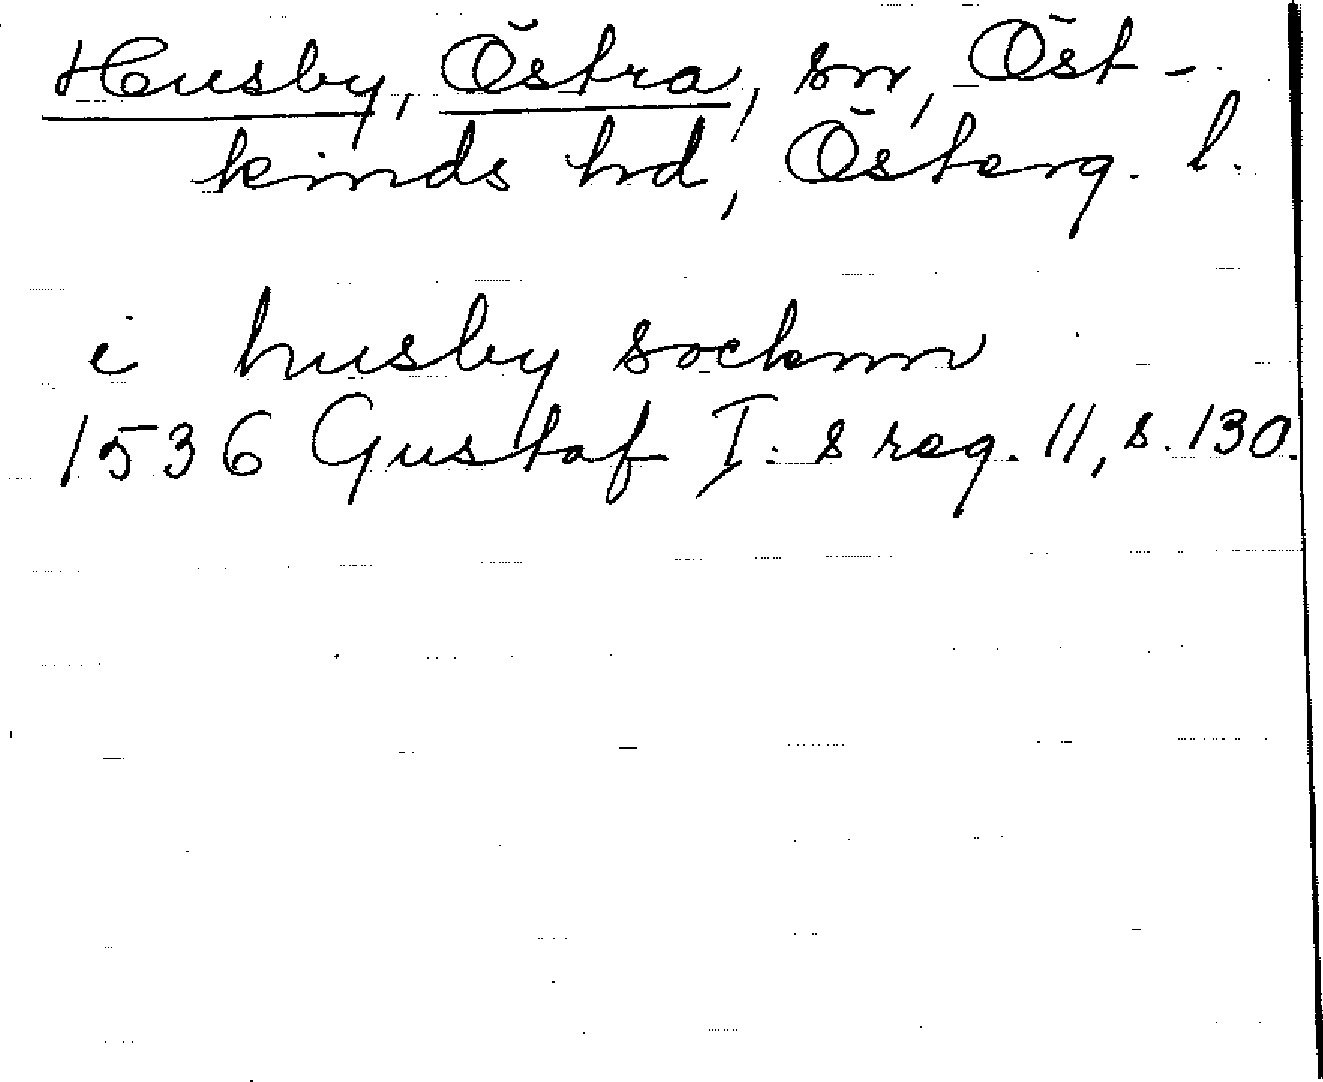 Husby, Östra, sn, Öst-
kinds hd, Österg. l.
i husby socknn
1536 Gustaf I:s reg. 11, s. 130.